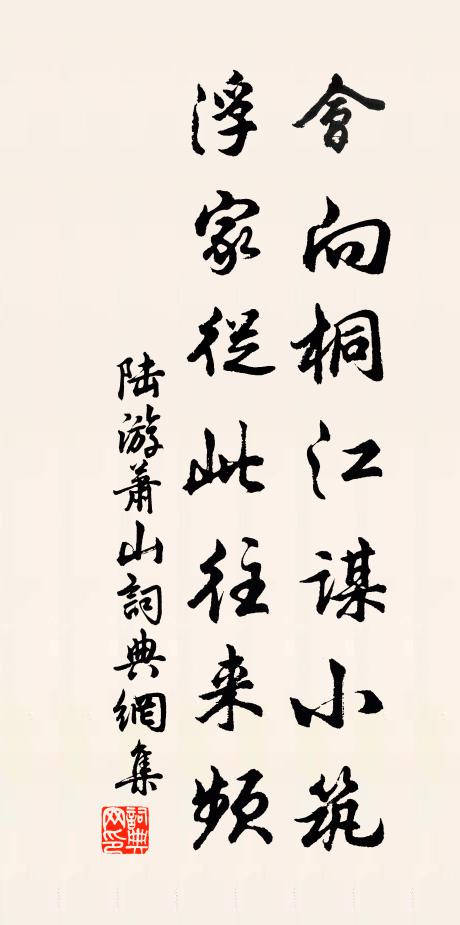 會向桐江謀小筑
浮家從此往来頻
陆游蕭山詞典網集
詞典
网印